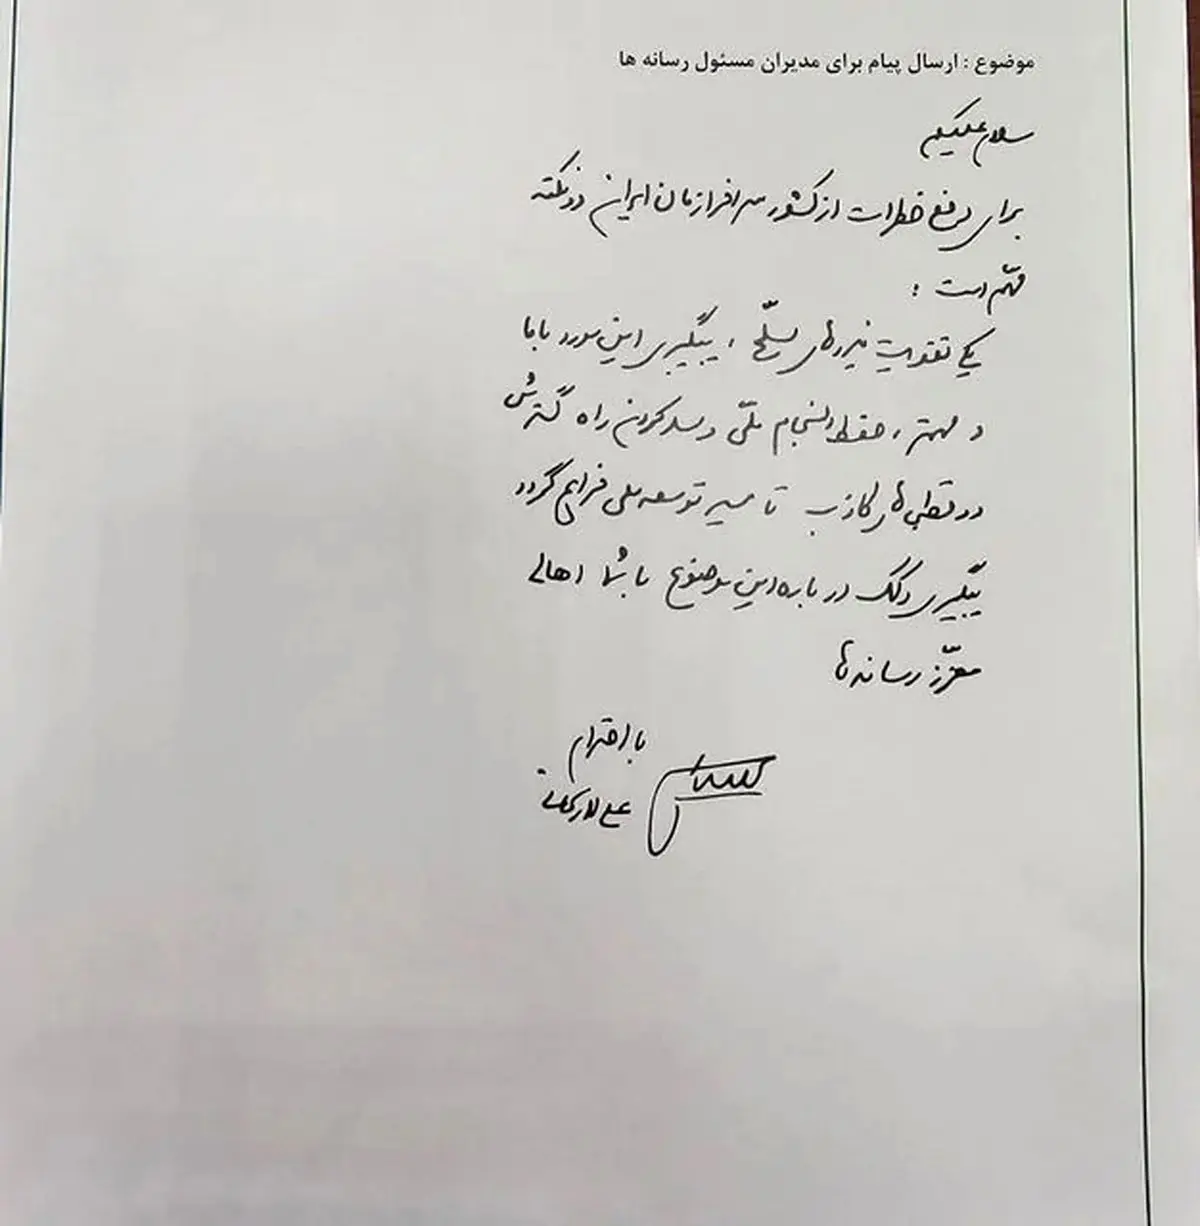 موضوع : ارسال پیام برای مدیران مسئول رسانه ها
سلام علیکم
برای رفع خطرات از کشور سرافرازمان ایران دو نکته
مهم است :
یکی تقویت نیروهای مسلّح ، پیگیری این مورد با ما
و مهمتر ، حفظ انسجام ملّی و سد کردن راه گسترش
دوقطبی‌های کاذب تا مسیر توسعه ملی فراهم گردد
پیگیری و کمک درباره این موضوع با شما اهالی
معزّز رسانه‌ها
با احترام
علی لاریجانی